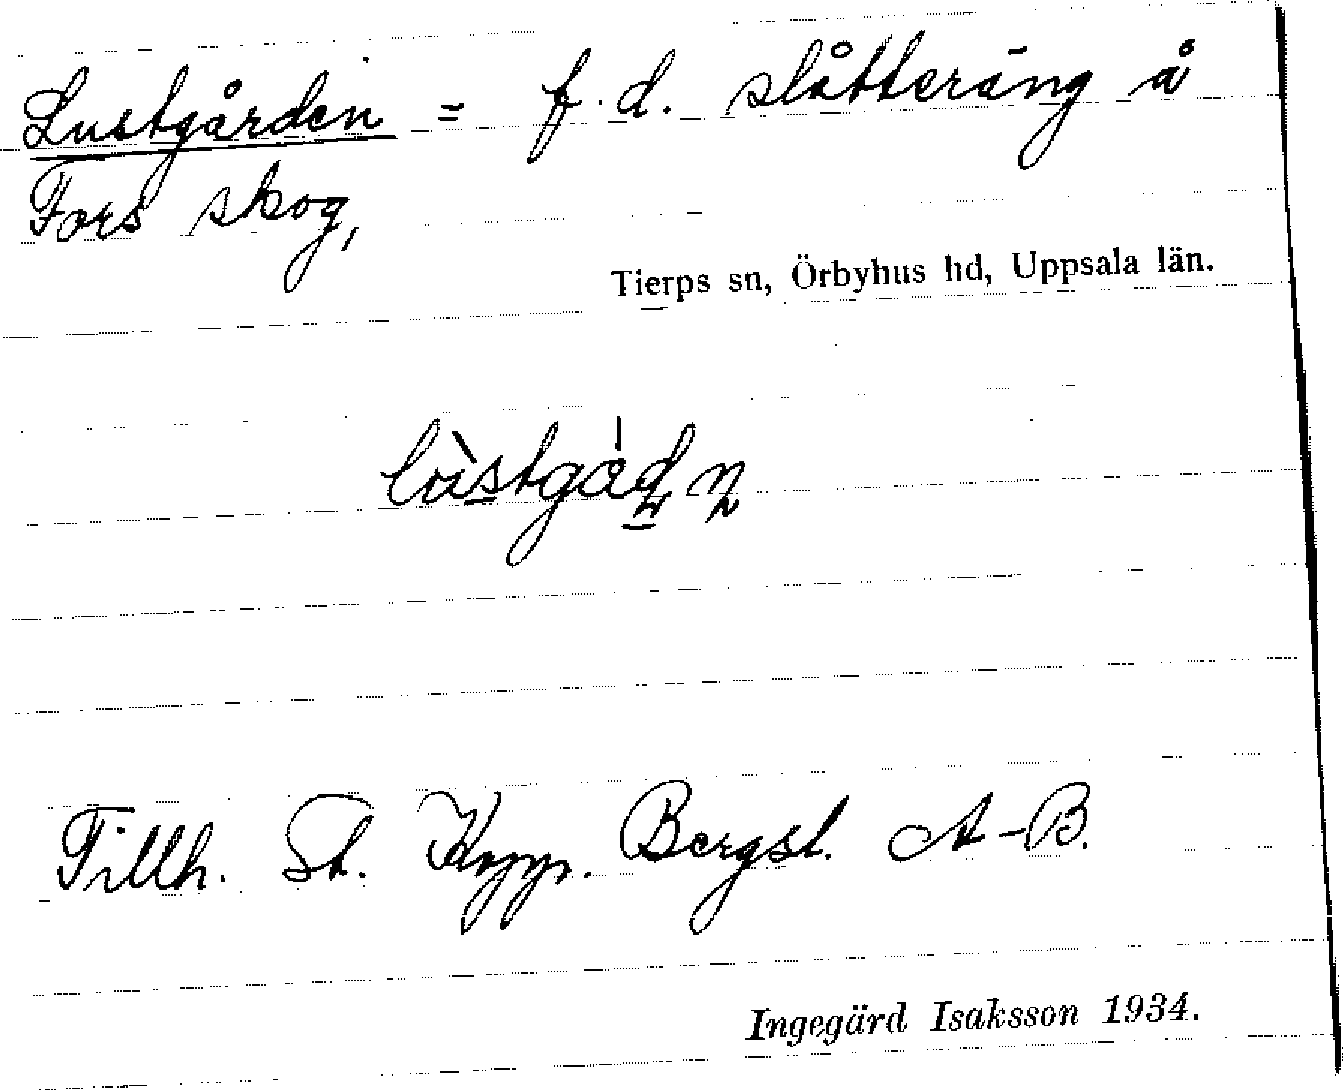 Lustgården = f.d. slåtteräng å
Fors skog,
Tierps sn, Örbyhus hd, Uppsala län.
Tillh. St. Kopp. Bergsl. A-B.
Ingegärd Isaksson 1934.